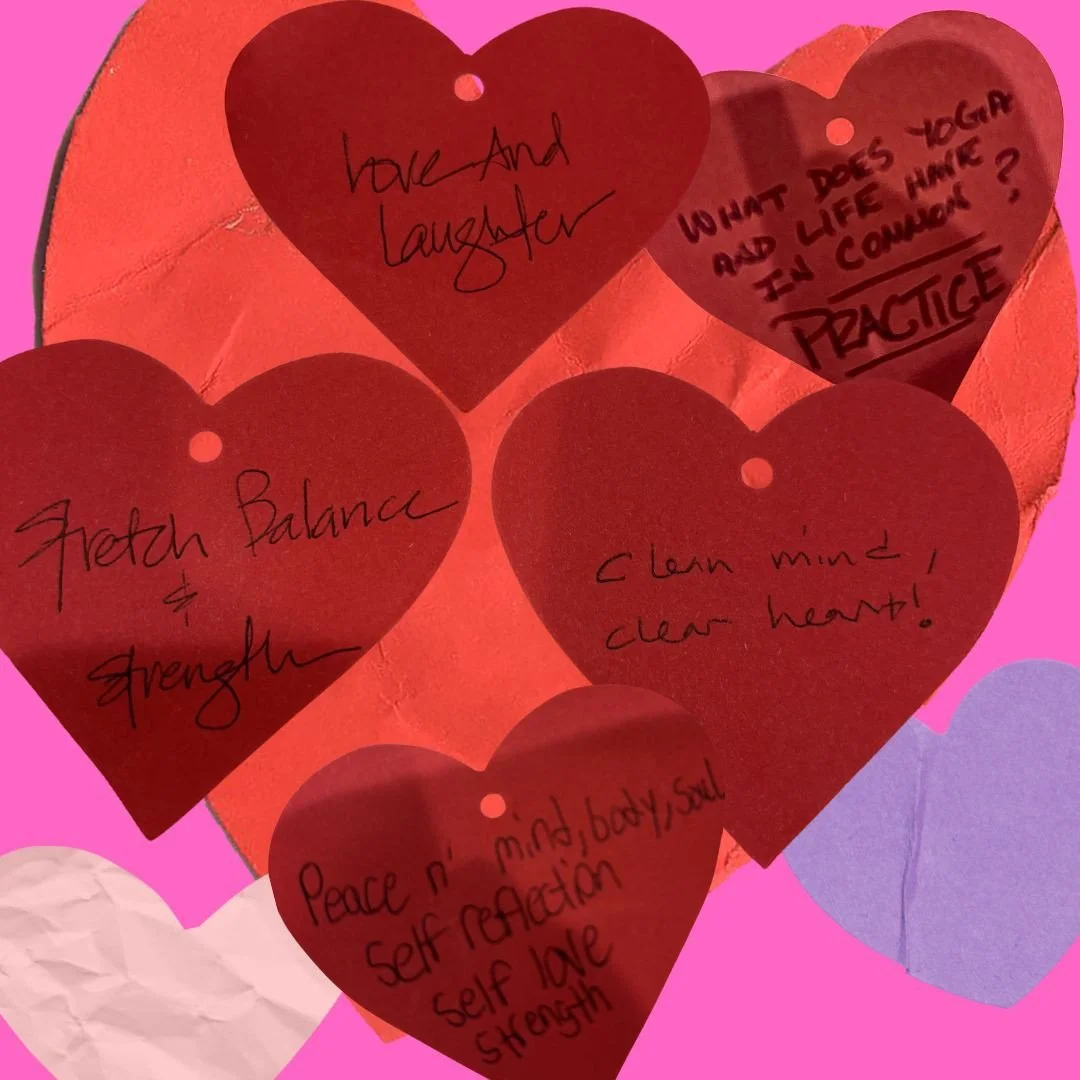 Love And
Laughter
WHAT DOES YOGA
AND LIFE HAVE
IN COMMON ?
PRACTICE
Stretch Balance
&
Strength
Clean mind,
clear heart!
Peace n' mind, body, soul
Self reflection
Self love
strength